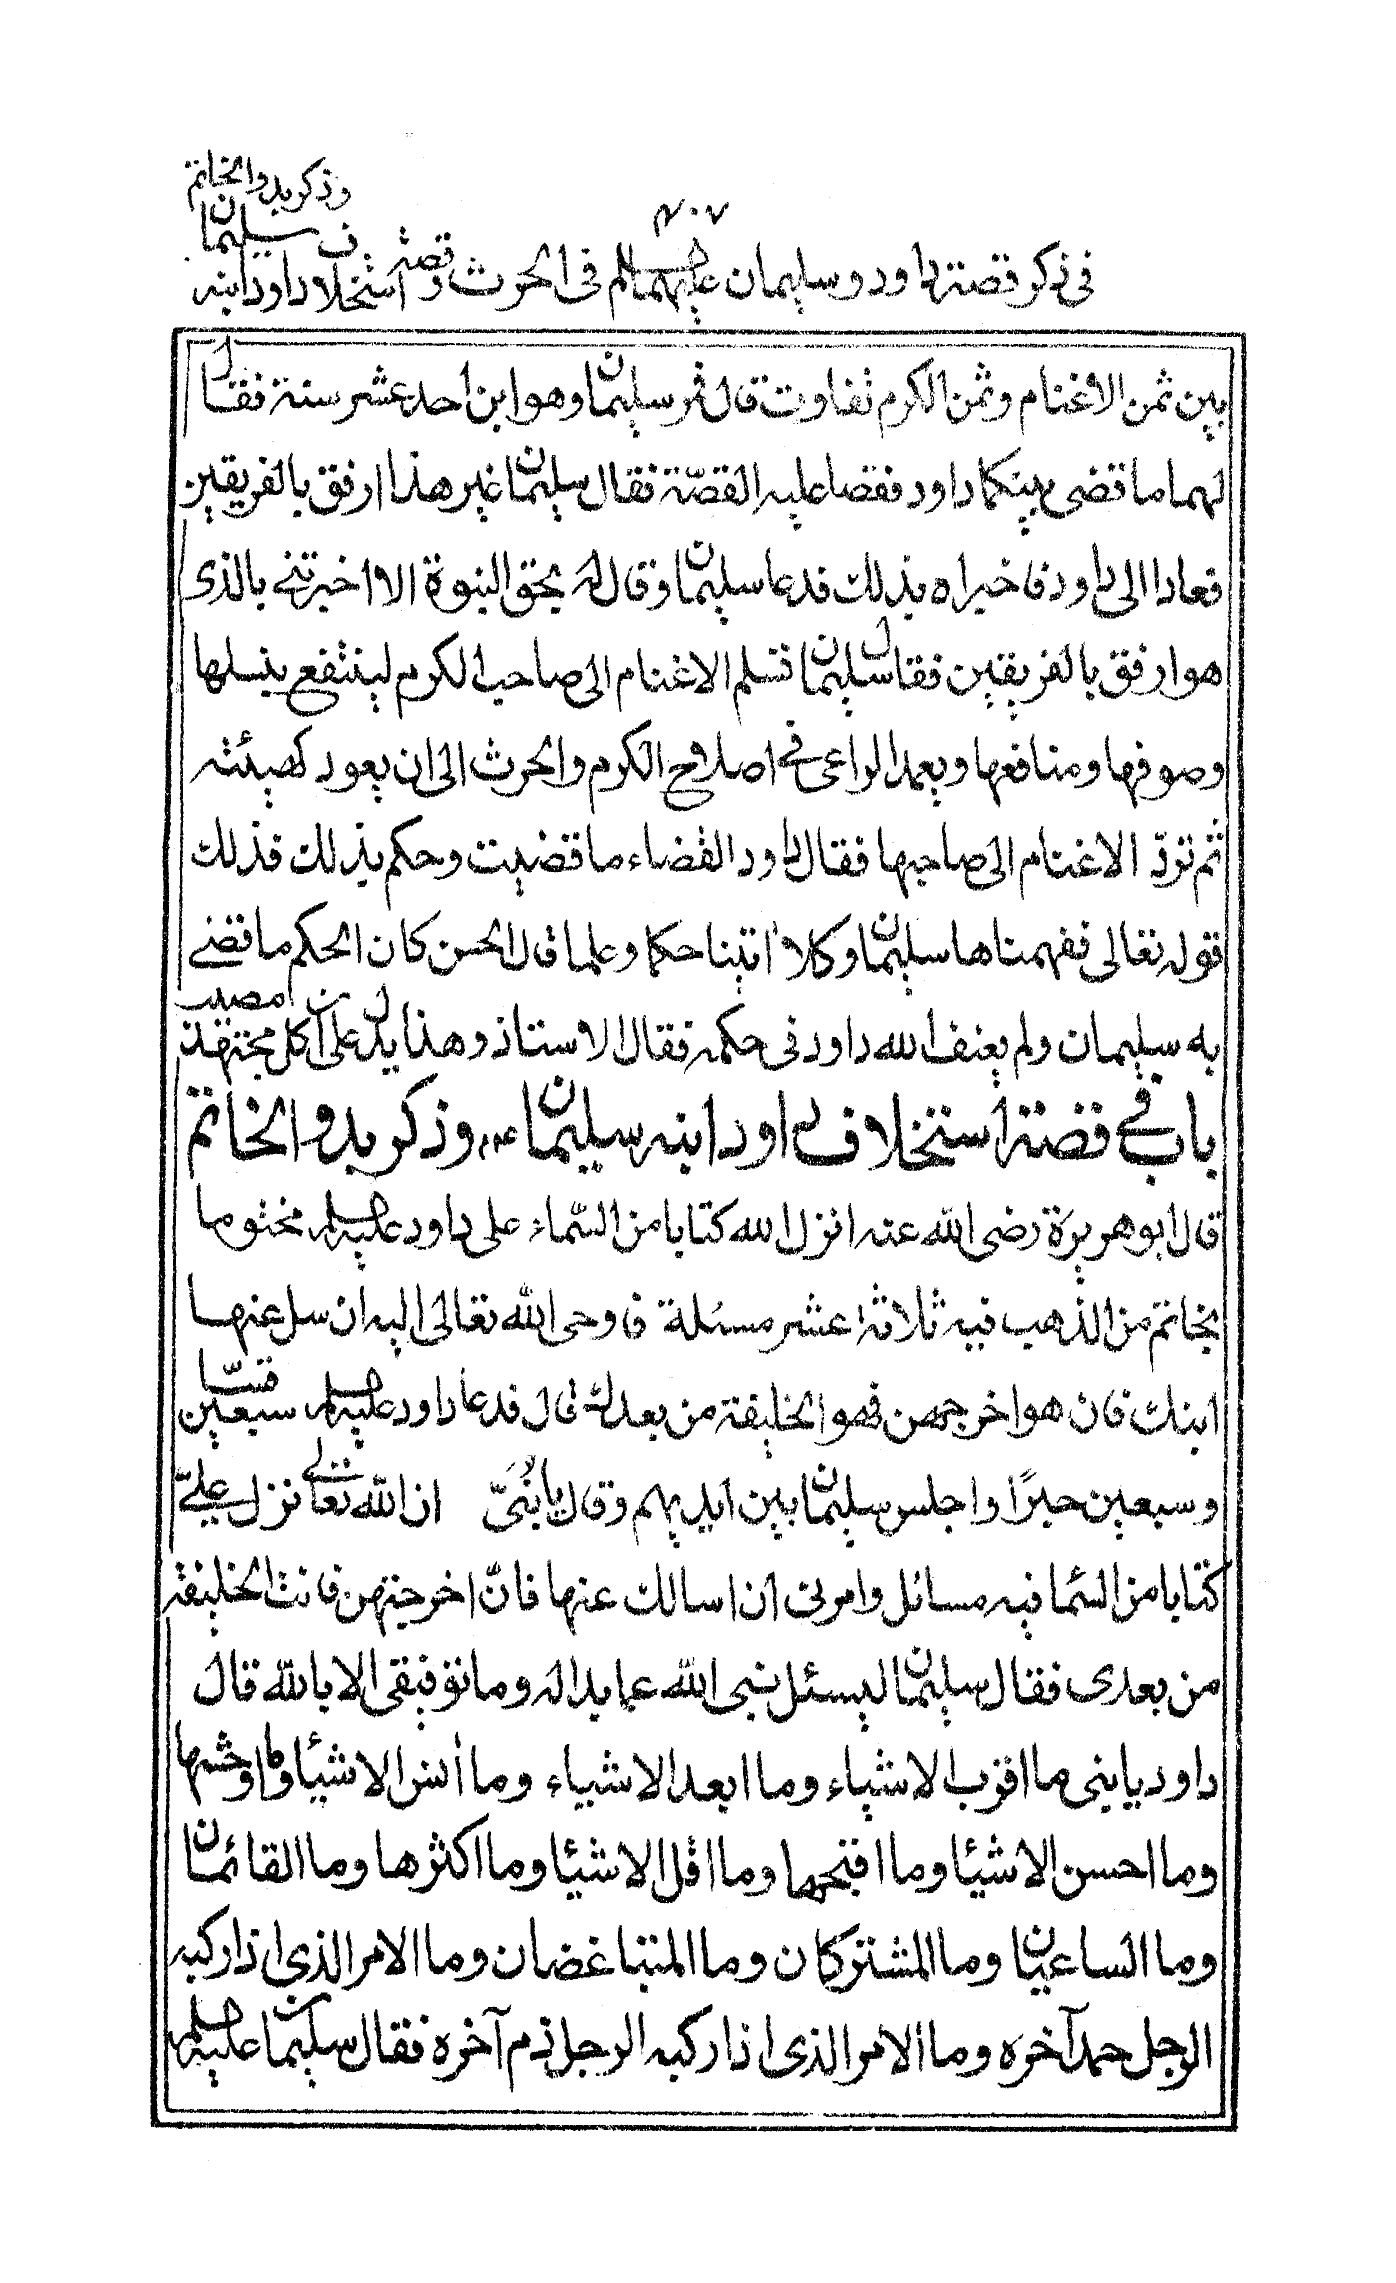 ٤٠٧
فى ذكر قصة داود وسليمان عليهما السلم فى الحرث وقصة استخلاف داود ابنه
سليمان وذكر بدو الخاتم
بين ثمن الاغنام وثمن الكرم تفاوت قال فمر سليمان وهو ابن احد عشر سنة فقال
لهما ما قضى بينكما داود فقصا عليه القصّة فقال سليمان غير هذا ارفق بالفريقين
فعادا الى داود فاخبراه بذلك فدعا سليمان وقال له بحق النبوة الا اخبرتنى بالذى
هو ارفق بالفريقين فقال سليمان تسلم الاغنام الى صاحب الكرم لينتفع بنسلها
وصوفها ومنافعها ويعمل الراعى فى اصلاح الكرم والحرث الى ان يعود كهيئته
ثم تردّ الاغنام الى صاحبها فقال داود القضاء ما قضيت وحكم بذلك فذلك
قوله تعالى ففهمناها سليمان وكلا اتينا حكما وعلما قال الحسن كان الحكم ما قضى
به سليمان ولم يعنف الله داود فى حكمه فقال الاستاذ وهذا يدل على ان كل مجتهد مصيب
باب فى قصة استخلاف داود ابنه سليمان عم وذكر بدو الخاتم
قال ابو هريرة رضى الله عنه انزل الله كتابا من السّماء على داود عليه السلم مختوما
بخاتم من الذهب فيه ثلاثة عشر مسئلة فاوحى الله تعالى اليه ان سل عنها
ابنك فان هو اخرجهن فهو الخليفة من بعدك قال فدعا داود عليه السلم سبعين قسّا
وسبعين حبرًا واجلس سليمان بين ايديهم وقال يا بُنَىّ ان الله تعالى نزل علىّ
كتابا من السما فيه مسائل وامرنى ان اسالك عنها فانّ اخرجتهن فانت الخليفة
من بعدى فقال سليمان ليسئل نبى الله عما بدا له وما توفيقى الا بالله قال
داود يا بنى ما اقرب الاشياء وما ابعد الاشياء وما انس الاشيا وما اوحشها
وما احسن الاشيا وما اقبحها وما اقل الاشيا وما اكثرها وما القائمان
وما الساعيان وما المشتركان وما المتباغضان وما الامر الذى اذا ركبه
الرجل حمد آخره وما الامر الذى اذا ركبه الرجل ذم آخره فقال سليمان عليه السلم